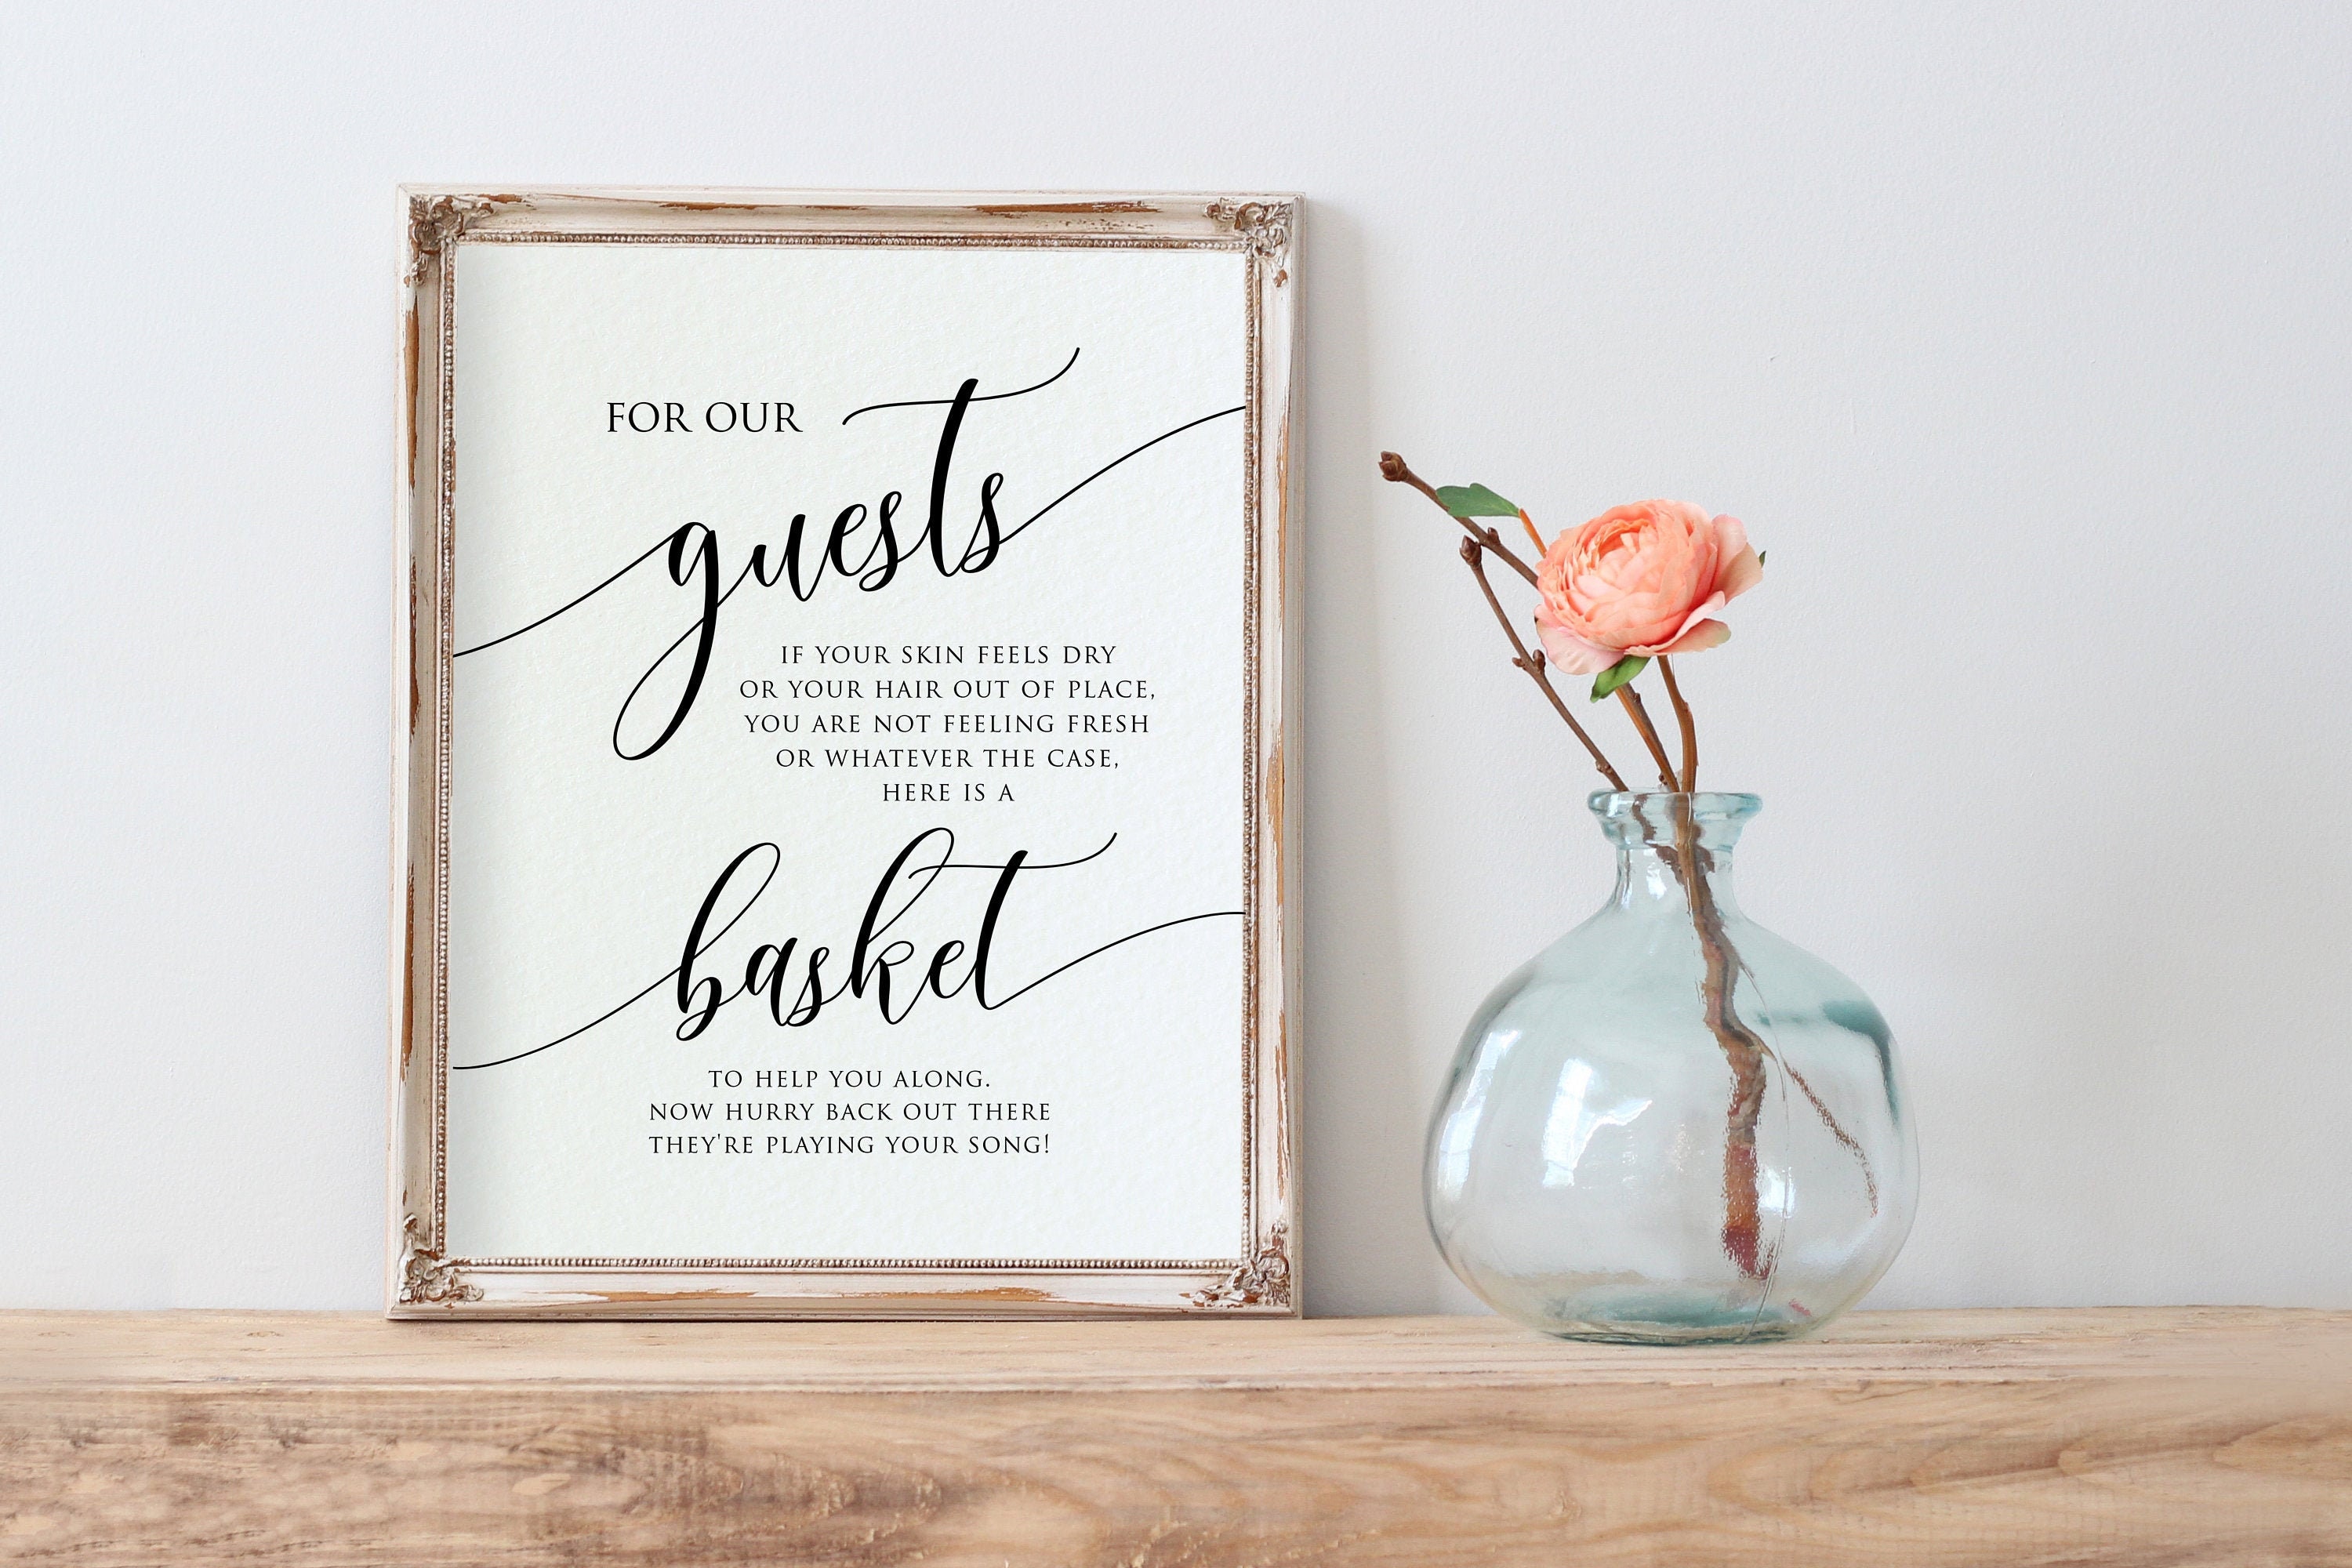 FOR OUR
guests
IF YOUR SKIN FEELS DRY
OR YOUR HAIR OUT OF PLACE,
YOU ARE NOT FEELING FRESH
OR WHATEVER THE CASE,
HERE IS A
basket
TO HELP YOU ALONG.
NOW HURRY BACK OUT THERE
THEY'RE PLAYING YOUR SONG!